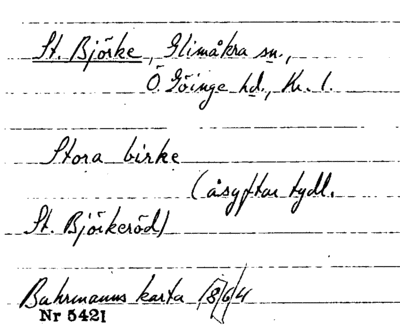 St. Björke, Glimåkra sn.,
Ö. Göinge hd., Kr. l.
Stora birke
(åsyftar tydl.
St. Björkeröd)
Buhrmanns karta 1864
Nr 5421